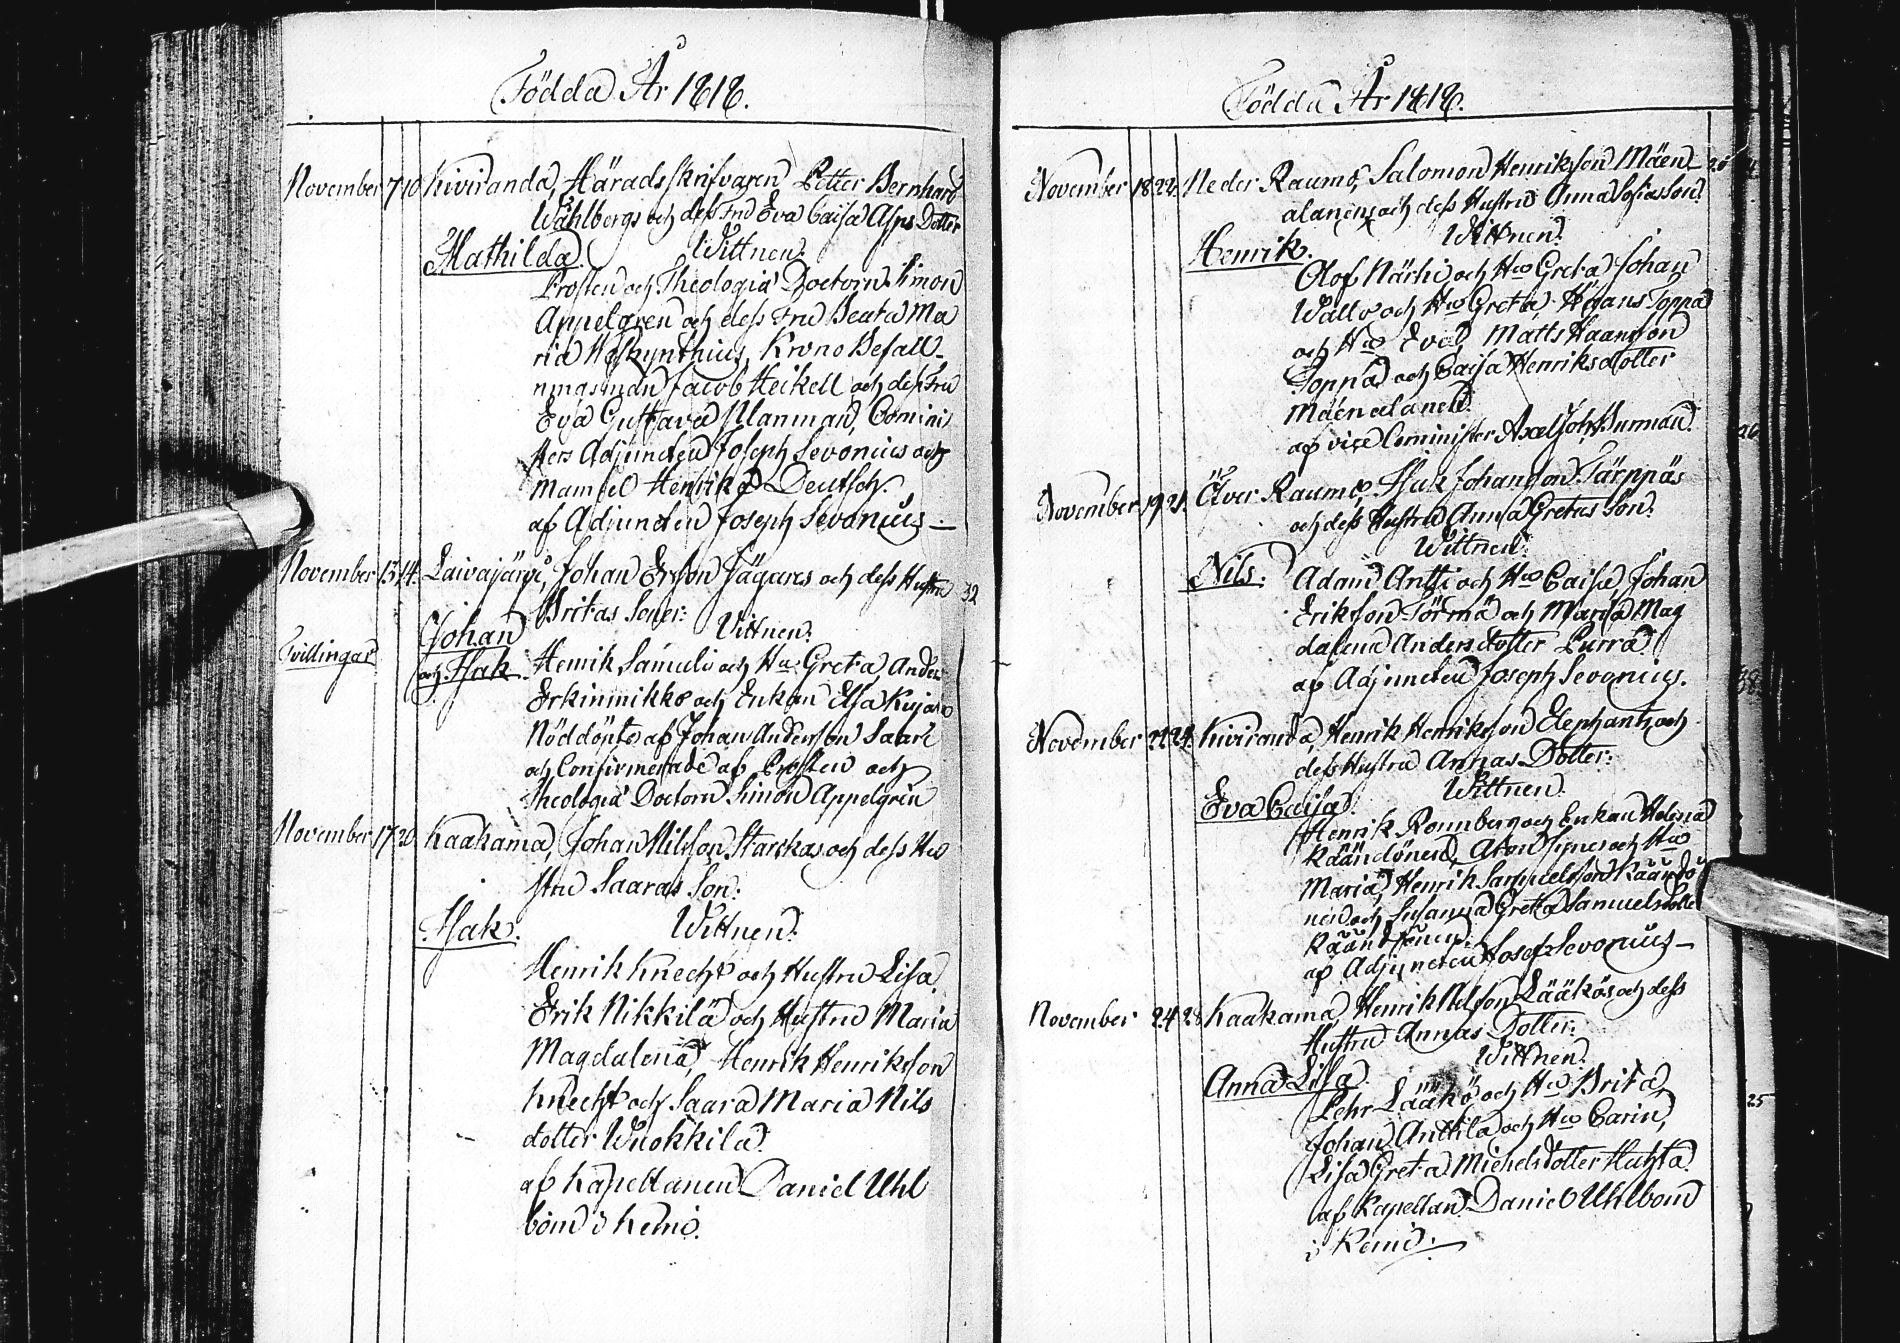 Födda År 1818.
November 7 10 Kiviranda, Härads Skrifvaren Petter Bernhard
Wahlbergs och dess Fru Eva Caisa Asps Dotter
Mathilda. Wittnen.
Prosten och Theologiæ Doctorn Simon
Appelgren och dess Fru Beata Ma
ria Krono Befall-
ningsman Jacob Heikell och dess Fru
Eva Gustava Comini
sters Adjuncten Joseph Sevonius och
Mamsel Henrika Deutsch.
af Adjuncten Joseph Sevonius.—
November 13 14. Laivajärvi, Johan Ersson Jägares och dess Hustru 32
Britas Söner:
Johan Vittnen.
Tvillingar
och Isak. Henrik Samuli och Hu Greta, Anders
Erkinmikko och Enkan Elsa
Nöddöpte af Johan Andersson Saari
och Confirmerade af Prosten och
Theologiæ Doctorn Simon Appelgren
November 17 20 Kaakama, Johan Nilsson Starckas och dess Hu
stru Saaras Son:
Isak. Wittnen.
Henrik Knecht och Hustru Lisa
Erik Nikkilä och Hustru Maria
Magdalena, Henrik Henriksson
Knecht och Saara Maria Nils
dotter Wuokkila.
af Kapellanen Daniel Uhl
bom i Kemi.
Födda År 1818.
November 18 22. Neder Raumo, Salomon Henriksson Mäen-
alanens och dess Hustru Anna Sofias Son.
Henrik. Wittnen.
Olof Närhi och Hu Greta, Johan
Wallo och Hu Greta, Toppa
och Hu Eva, Matts
Toppa och Caisa Henriksdotter
Mäenalanen.
af vice Cominister Axel Joh. Burman. 26
November 19 21. Öfver Raumo, Isak Johansson Tärppäs
och dess Hustru Anna Gretas Son.
Wittnen.
Nils. Adam Antti och Hu Caisa, Johan
Eriksson Törmä och Maria Mag
dalena Andersdotter Purra
af Adjuncten Joseph Sevonius.
November 22 24. Kiviranda, Henrik Henriksson Elephants och
dess Hustru Annas Dotter:
Wittnen.
Eva Caisa.
Henrik Rönnberg och Enkan Helena
Käändönen, och Hu
Maria, Henrik Samuelsson Käändö
nen och Susanna Greta Samuelsdotter
Käändönen.
af Adjuncten Josef Sevonius—
November 24 28 Kaakama, Henrik Nilsson Lääkös och dess
Hustru Annas Dotter:
Wittnen.
Anna Lisa.
Pehr Lääkö och Hu Brita,
Johan Anttila och Hu Carin, 25
Lisa Greta Michelsdotter Huhta
af Kapellan Daniel Uhlbom
i Kemi.